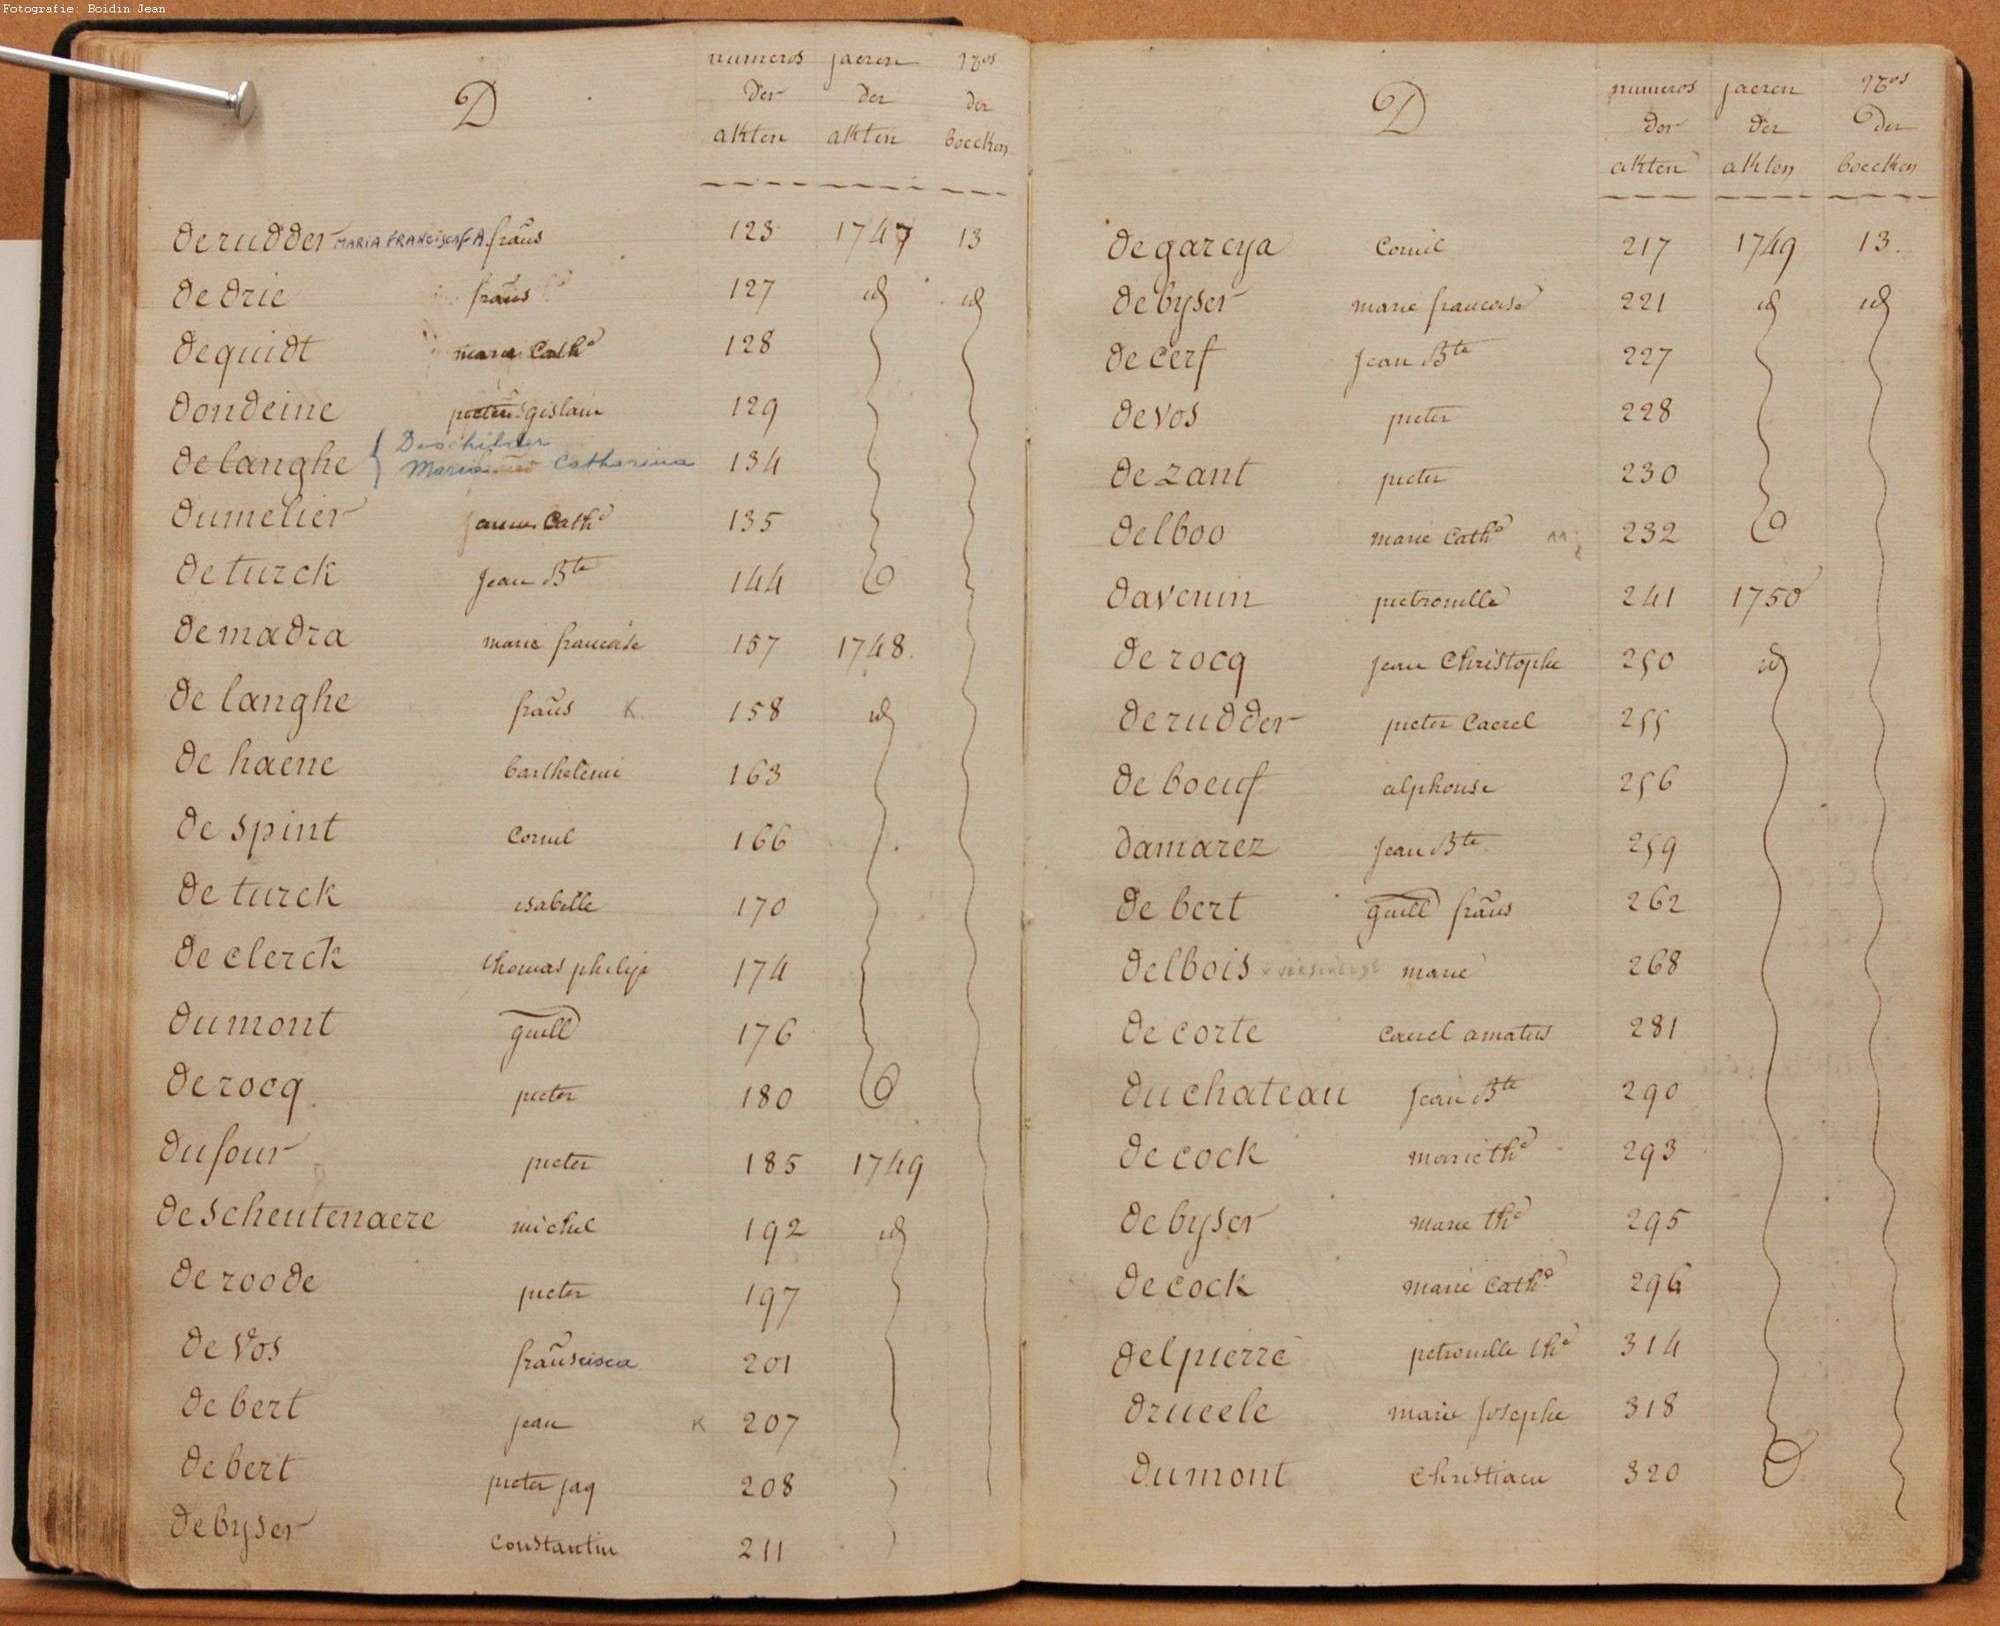 Fotografie: Boidin Jean
D
numeros der akten
jaeren der akten
nros der boecken
derudder MARIA FRANCISCA frañs 123 1747 13
de drie frañs 127 id id
dequidt marie Cathe 128
dondeine gislain 129
delanghe { Deschilder
Maria Catharina 134
dumelier Cathe 135
de turck jean Bte 144
de madra marie francoise 157 1748.
de langhe frañs K 158 id
de haene barthelemi 163
de spint Cornil 166
de turck isabelle 170
de clerck thomas philipe 174
dumont guill 176
derocq pieter 180
dufour pieter 185 1749
descheutenaere michel 192 id
de roode pieter 197
de vos frañscisca 201
de bert jean K 207
de bert pieter jaq 208
debyser Constantin 211
D
numeros der akten
jaeren der akten
nros der boecken
degarcya Cornil 217 1749 13.
debyser marie francoise 221 id id
de cerf jean Bte 227
devos pieter 228
de zant pieter 230
delboo marie Cathe 232
davenin pietronelle 241 1750
de rocq jean Christophe 250 id
derudder pieter Caerel 255
de boeuf alphonse 256
damarez jean Bte 259
de bert guill frañs 262
delbois marie 268
de corte Caerel amatus 281
duchateau jean Bte 290
de cock marie the 293
debyser marie the 295
de cock marie Cathe 296
delpierre petronelle the 314
drueele marie josephe 318
dumont Christiaen 320